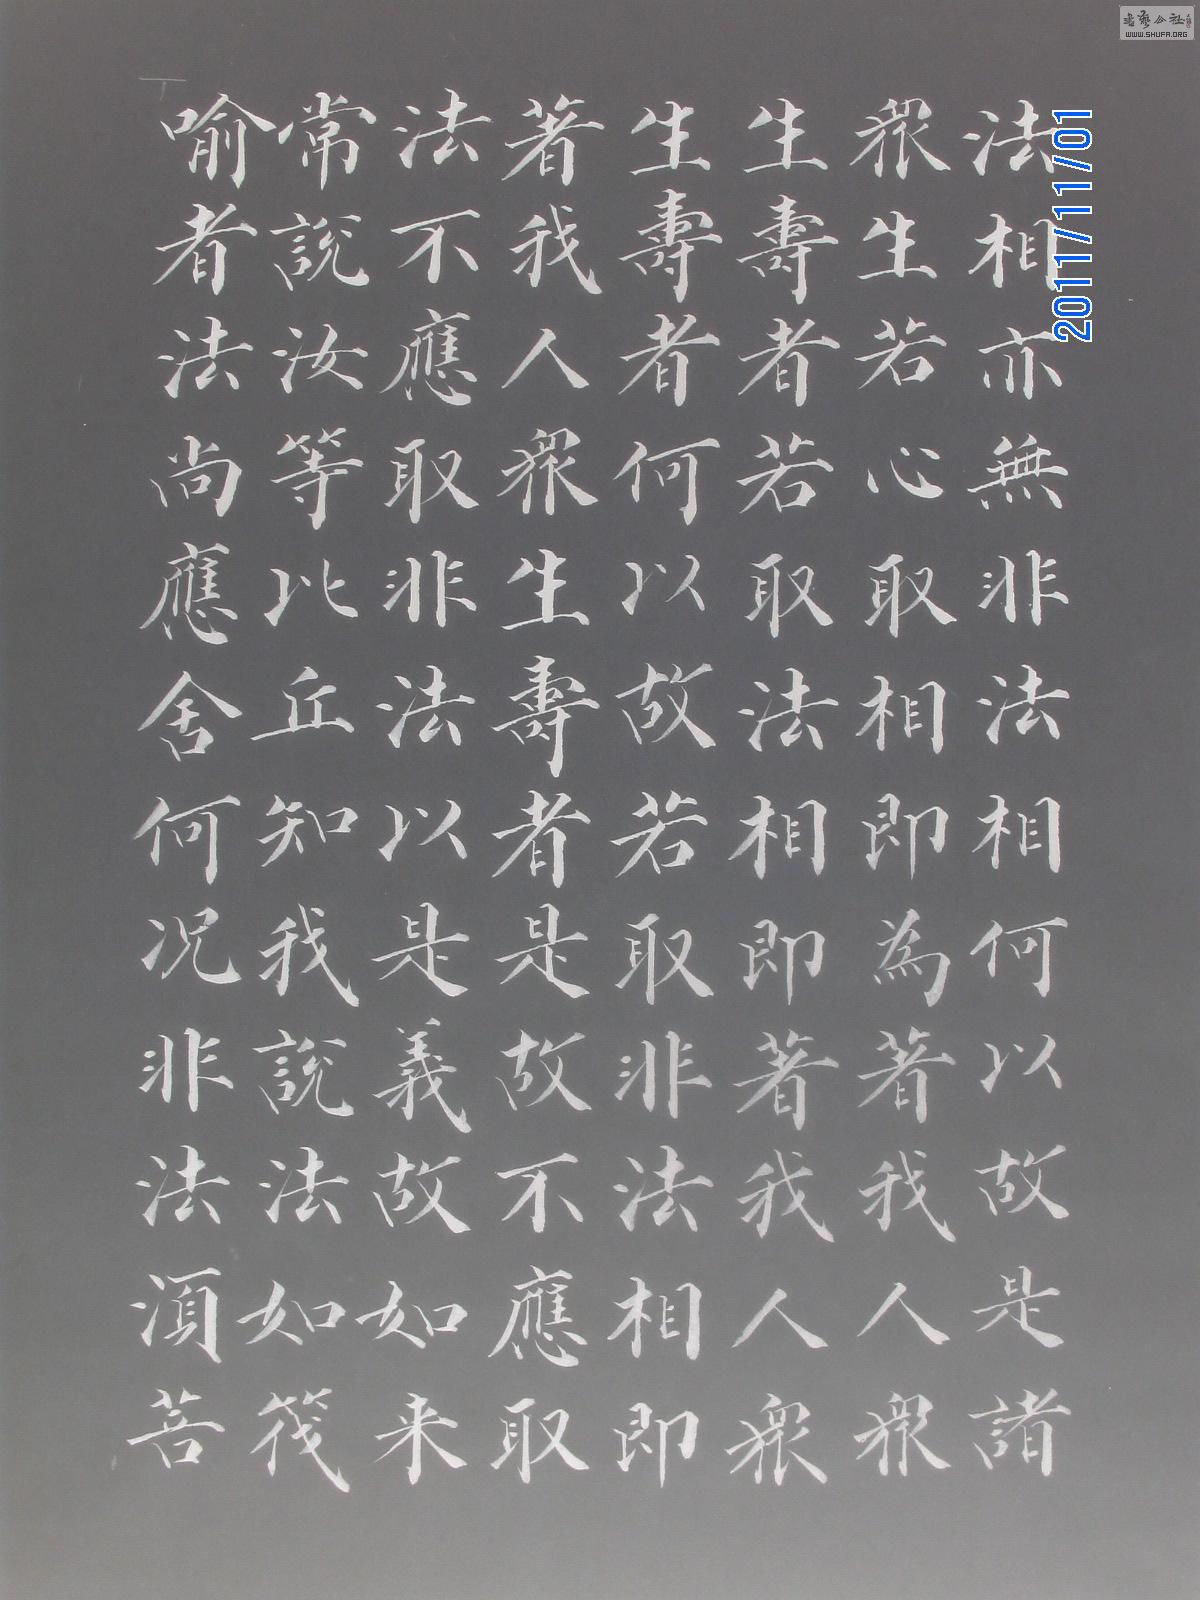 法相亦無非法相何以故是諸
眾生若心取相即為著我人眾
生壽者若取法相即著我人眾
生壽者何以故若取非法相即
著我人眾生壽者是故不應取
法不應取非法以是義故如来
常說汝等比丘知我說法如筏
喻者法尚應舍何况非法須菩
2011/11/01
書藝公社
WWW.SHUFA.ORG